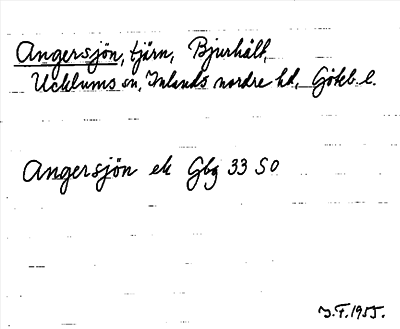 Angersjön, tjärn, Bjurhält,
Ucklums sn, Inlands nordre hd, Göteb. l.
Angersjön ek Gbg 33 SO
J.F. 1955.